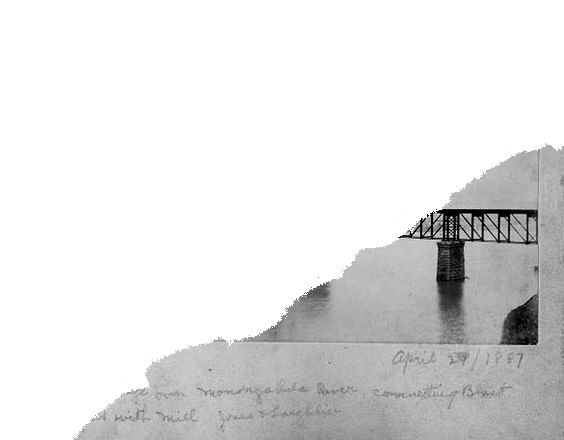 April 29/1887
over Monongahela River, connecting Blast
with Mill Jones & Laughlin